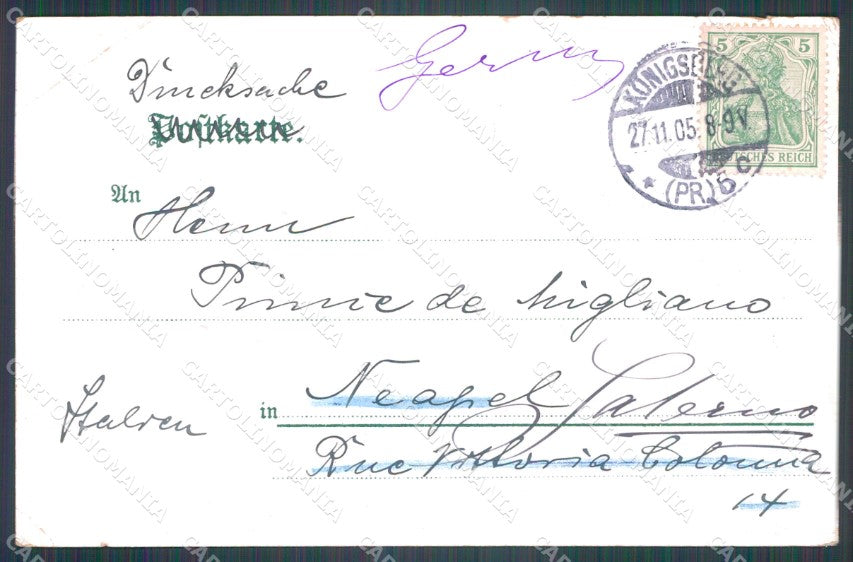 Drucksache
Postkarte.
KÖNIGSBERG
27.11.05. 8-9 V.
(PR.) 5 c
5 5
DEUTSCHES REICH
An
Herrn
Prince de Migliano
Italien
in Neapel Salerno
Rue Vittoria Colonna
14
CARTOLINOMANIA